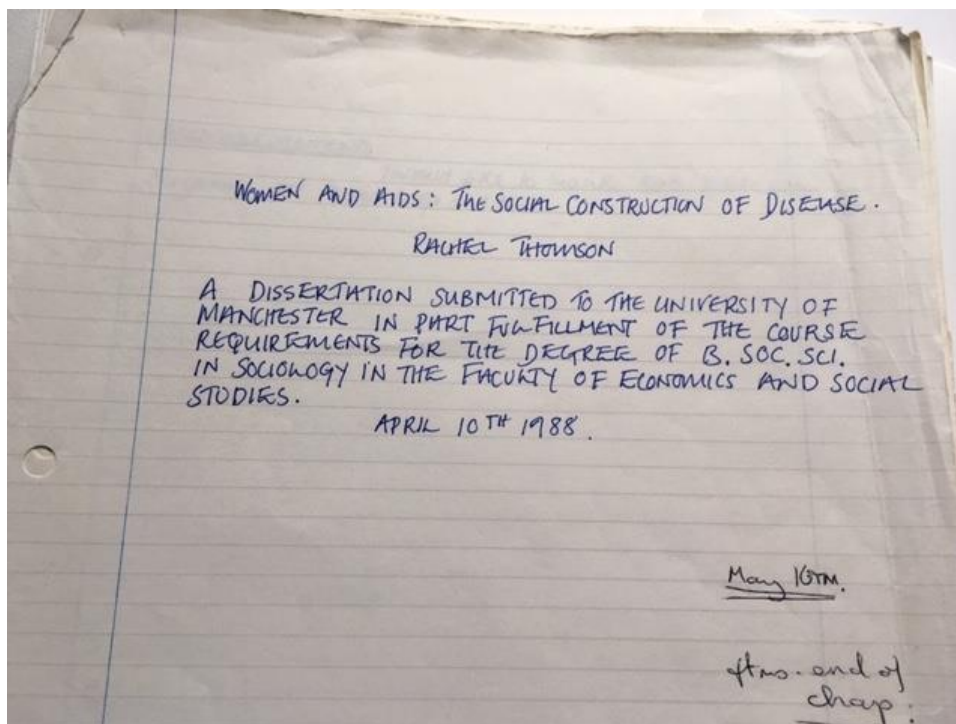 WOMEN AND AIDS: THE SOCIAL CONSTRUCTION OF DISEASE.
RACHEL THOMSON
A DISSERTATION SUBMITTED TO THE UNIVERSITY OF
MANCHESTER IN PART FULFILLMENT OF THE COURSE
REQUIREMENTS FOR THE DEGREE OF B. SOC. SCI.
IN SOCIOLOGY IN THE FACULTY OF ECONOMICS AND SOCIAL
STUDIES.
APRIL 10TH 1988.
May 10TH.
end of
chap.